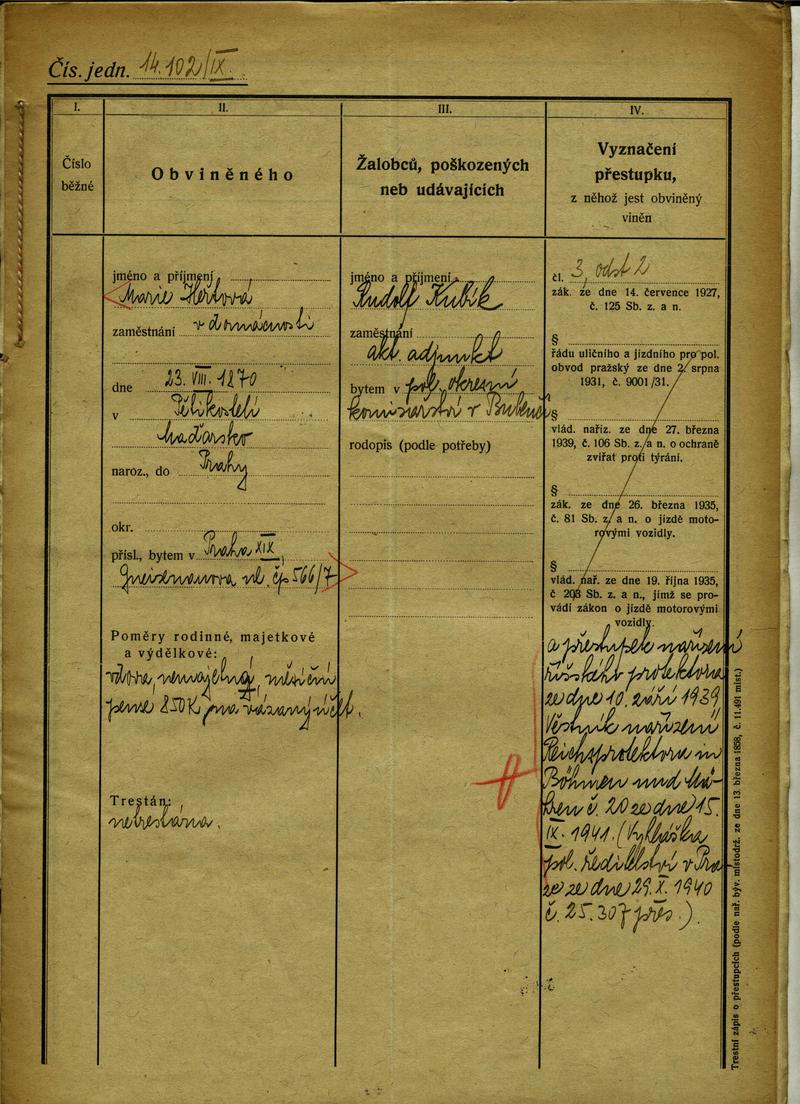 Čís. jedn. 14.102/IX.
I.
Číslo
běžné
II.
Obviněného
jméno a příjmení
Marie
zaměstnání v domácnosti
dne 23. VIII. 1870
v Pětikostelí
Maďarsko
naroz., do Prahy
okr.
přísl., bytem v Praha XIX,
Gneisenauova ul. čp 566/7
Poměry rodinné, majetkové
a výdělkové:
vdova, nemajetná, měsíční
pense 850 K
Trestán:
netrestána.
III.
Žalobců, poškozených
neb udávajících
jméno a příjmení
Rudolf Kubík
zaměstnání
akt. adjunkt
bytem v pol. okresní
komisařství v Bubenči
rodopis (podle potřeby)
IV.
Vyznačení
přestupku,
z něhož jest obviněný
viněn
čl. 3, odst 2
zák. ze dne 14. července 1927,
č. 125 Sb. z. a n.
§
řádu uličního a jízdního pro pol.
obvod pražský ze dne 2. srpna
1931, č. 9001/31.
§
vlád. naříz. ze dne 27. března
1939, č. 106 Sb. z. a n. o ochraně
zvířat proti týrání.
§
zák. ze dne 26. března 1935,
č. 81 Sb. z. a n. o jízdě moto-
rovými vozidly.
§
vlád. nař. ze dne 19. října 1935,
č 203 Sb. z. a n., jímž se pro-
vádí zákon o jízdě motorovými
vozidly.
a přestupek nařízení
říšského protektora
ze dne 10. září 1939,
Věstník nařízení
Reichsprotektora in
Böhmen und Mä-
hren č. 20 ze dne 15.
IX. 1941. (Vyhláška
pol. ředitelství v Pra-
ze ze dne 29. X. 1940
č. 25.307 pres.).
Trestní zápis o přestupcích (podle nař. býv. místodrž. ze dne 13. března 1858, č. 11.491 míst.)